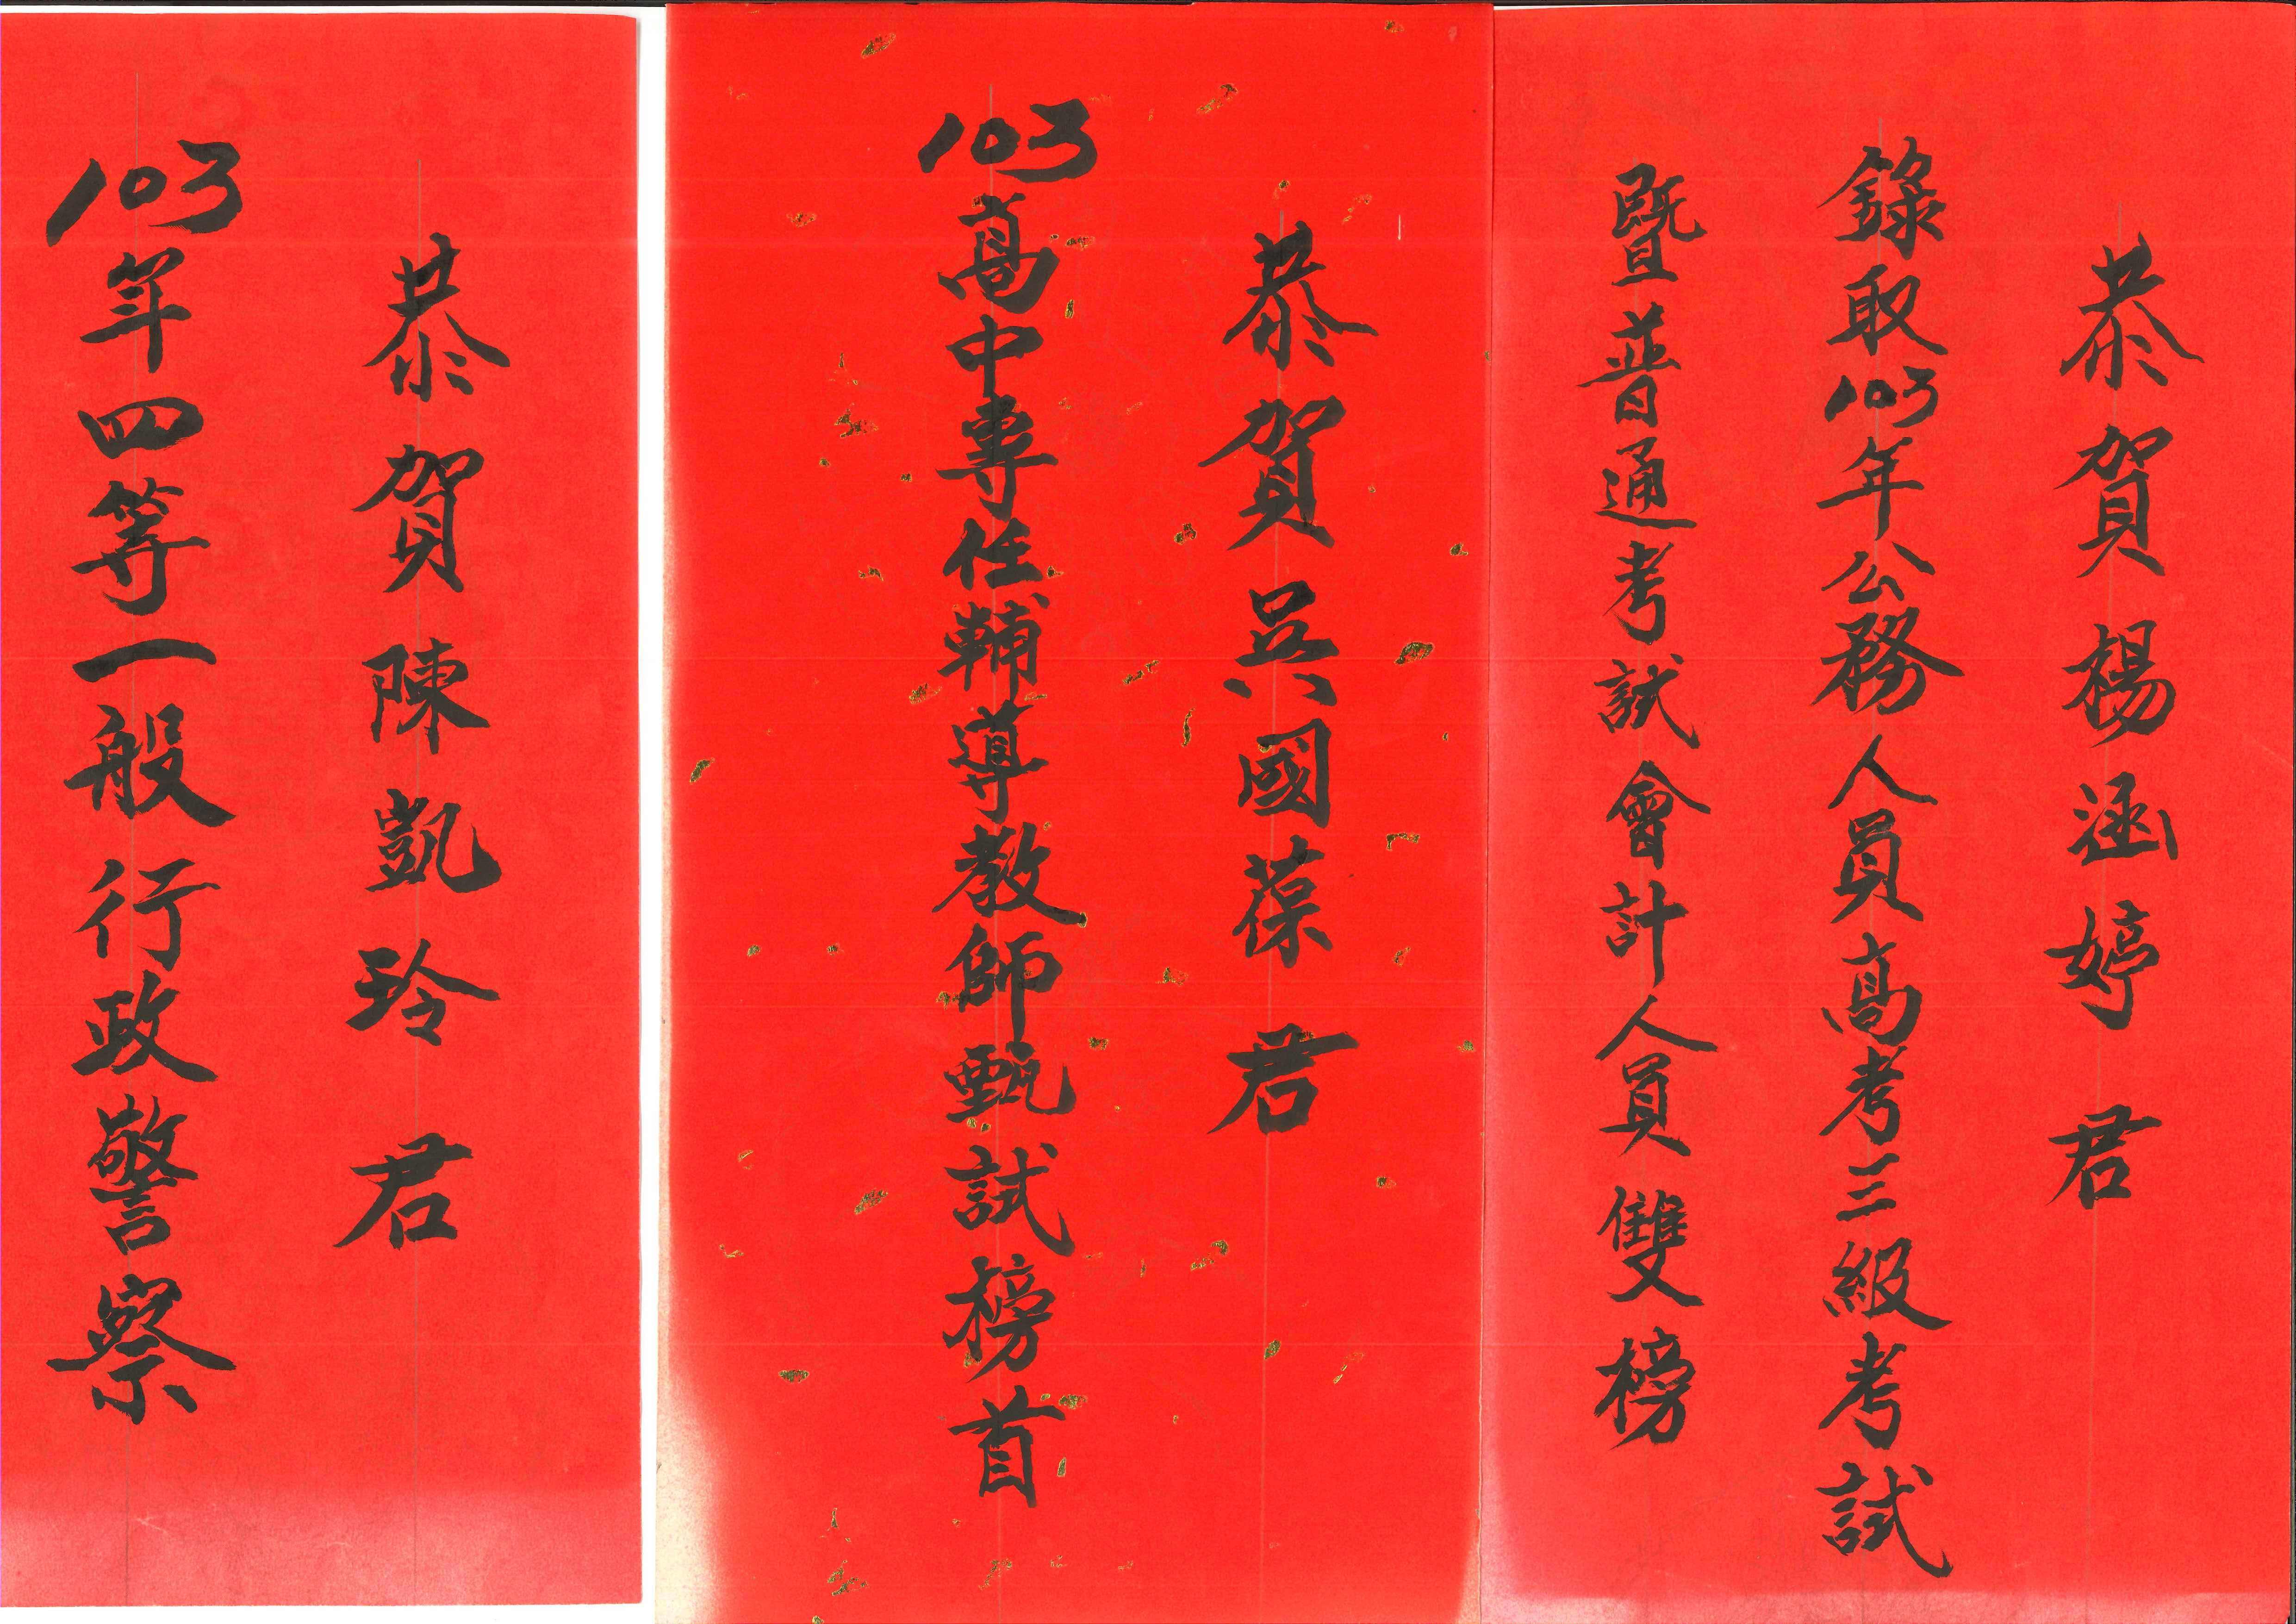 恭賀楊涵婷 君
錄取103年公務人員高考三級考試
暨普通考試會計人員雙榜
恭賀吳國葆 君
103高中專任輔導教師甄試榜首
恭賀陳凱玲 君
103年四等一般行政警察